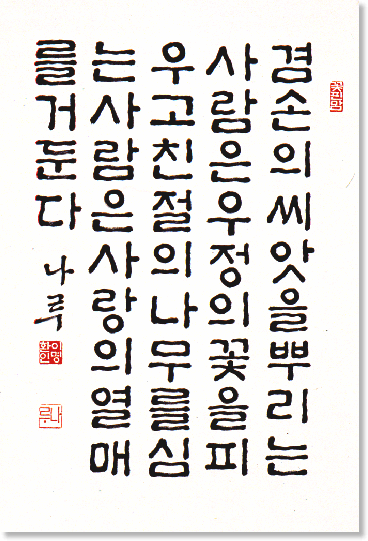 겸손의씨앗을뿌리는
사람은우정의꽃을피
우고친절의나무를심
는사람은사랑의열매
를거둔다
나루
이명환인
나루